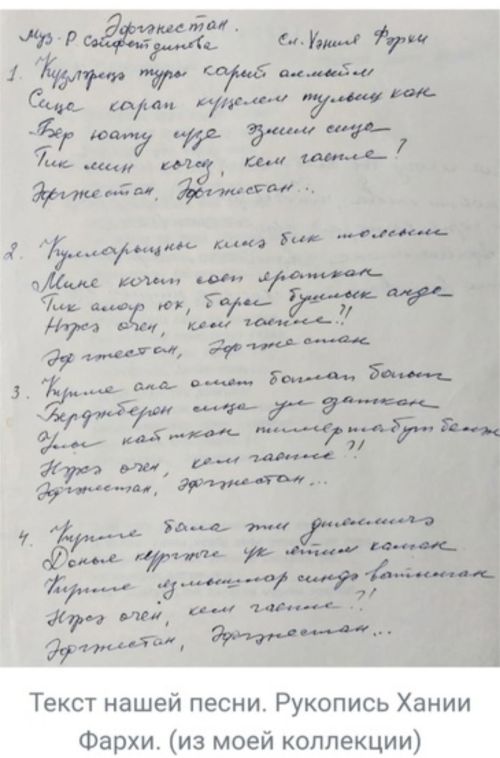 Әфганестан.
Муз. Р. Сәйфетдинова Сл. Хәния Фәрхи
1. Күзләреңә туры карый алмыйм
Сиңа карап күңелем тулыша кан
Бер юату сүзе эзлим сиңа
Тик мин көчсез, кем гаепле?
Әфганестан, Әфганестан...
2. Кулларыңны кинә бик телисең
Мине кочып сөеп яраткан
Тик алар юк, бары бушлык анда
Нәрсә өчен, кем гаепле?!
Әфганестан, Әфганестан
3. Күпме ана өмет баглап балып
Бердәнберен сиңа ул озаткан
Улы кайткан тимер табут белән
Нәрсә өчен, кем гаепле?!
Әфганестан, Әфганестан...
4. Күпме бала әти диялмичә
Дөнья күргәнче үк ятим калган
Күпме язмышлар синдә ватылган
Нәрсә өчен, кем гаепле?!
Әфганестан, Әфганестан...
Текст нашей песни. Рукопись Хании
Фархи. (из моей коллекции)